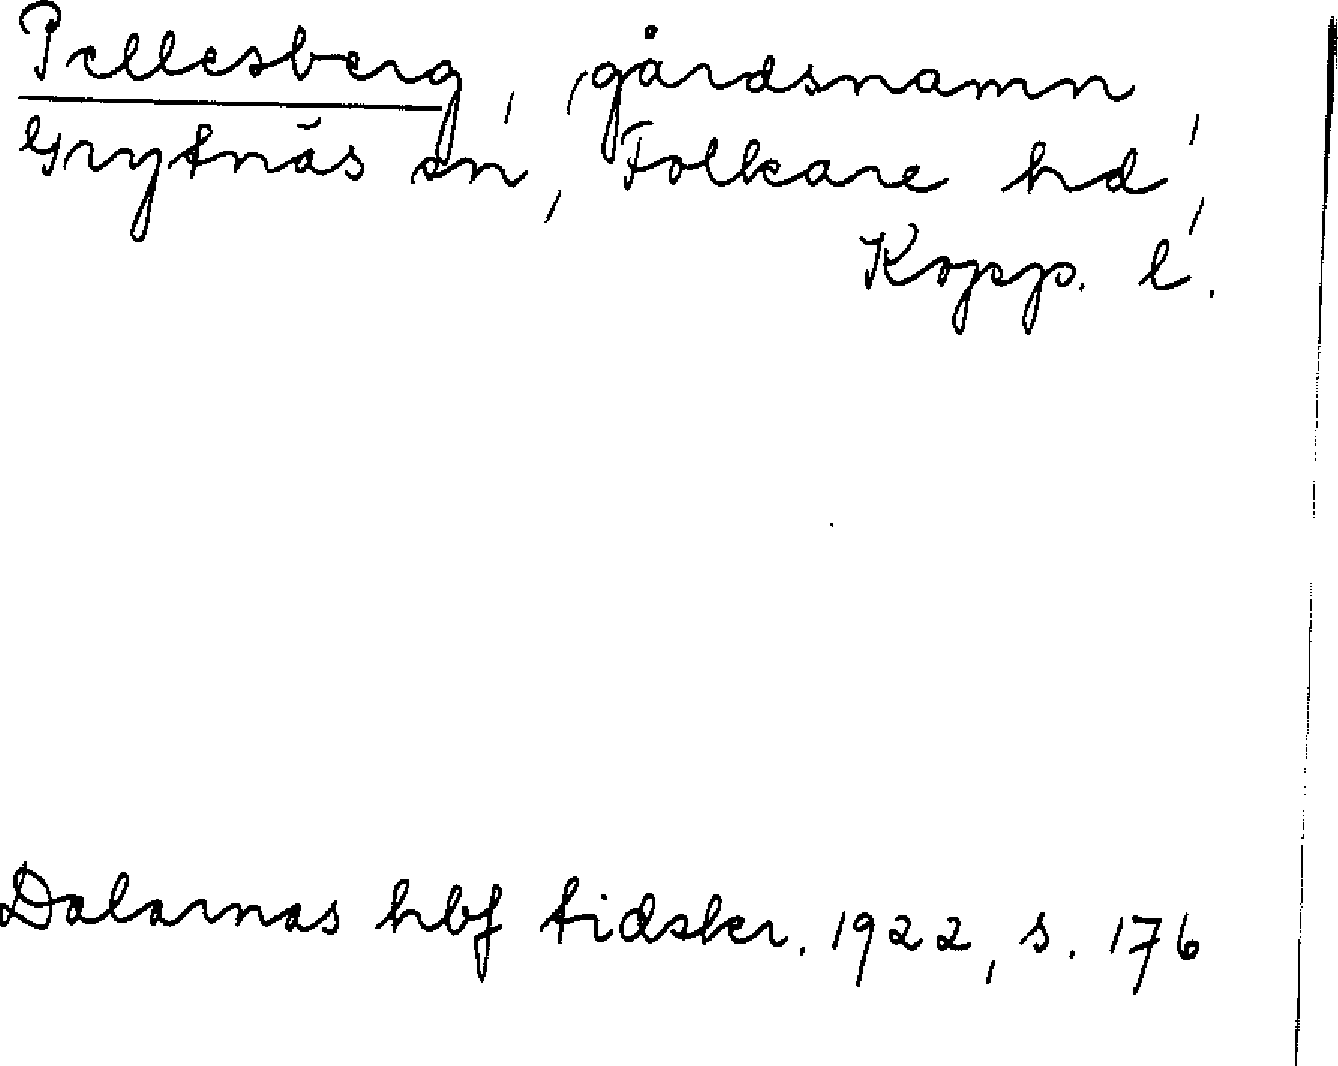 Pellesberg, gårdsnamn,
Grytnäs sn, Folkare hd,
Kopp. l.
Dalarnas hbf tidskr. 1922, s. 176